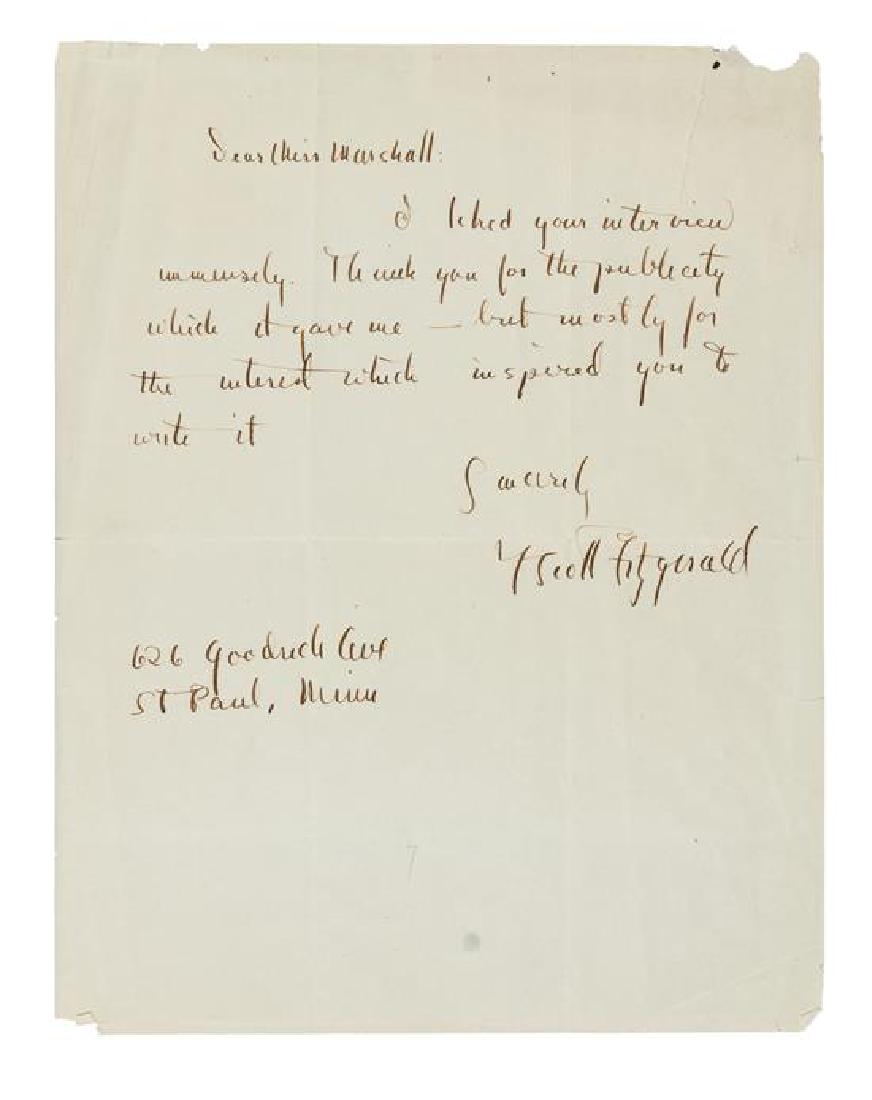 Dear Miss Marshall:
I liked your interview
immensely. Thank you for the publicity
which it gave me — but mostly for
the interest which inspired you to
write it
Sincerely
F Scott Fitzgerald
626 Goodrich Ave
St Paul, Minn
7